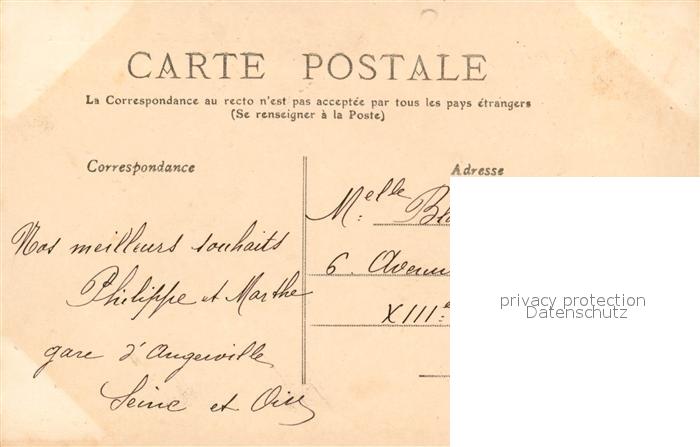 CARTE POSTALE
La Correspondance au recto n'est pas acceptée par tous les pays étrangers
(Se renseigner à la Poste)
Correspondance
Adresse
Nos meilleurs souhaits
Philippe et Marthe
gare d'Angerville
Seine et Oise
Melle
6. Avenu
XIIIe
privacy protection
Datenschutz